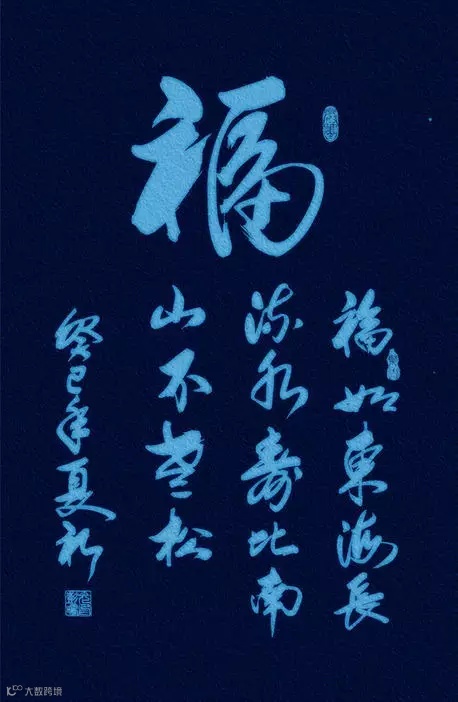 福
福如東海長
流水壽比南
山不老松
癸巳年夏
大数跨境